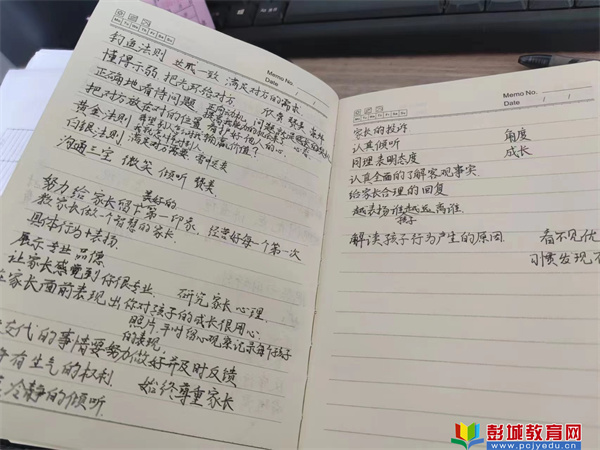 Memo No.
Mo Tu We Th Fr Sa Su
Date / /
钓鱼法则 达成一致 满足对方的需求
懂得示弱 把光环给对方 欣赏 赞美
正确地看待问题
把对方放在对的位置
黄金法则
白银法则 满足对方需要
沟通三宝 微笑 倾听 赞美
努力给家长留下第一印象，美好的 经营好每一个第一次
教家长做一个智慧的家长
具体行为+表扬
展示专业品德
让家长感觉到你很专业 研究家长心理
在家长面前表现出你对孩子的成长很用心
照片，平时留心观察记录每个孩子
的表现
交代的事情要努力做好并及时反馈
有生气的权利 始终尊重家长
冷静的倾听
Memo No.
Mo Tu We Th Fr Sa Su
Date / /
家长的投诉
认真倾听 角度
同理表明态度 成长
认真全面的了解客观事实
给家长合理的回复
越表扬谁越远离谁
孩子
解读孩子行为产生的原因 看不见优
习惯发现
彭城教育网
www.pcjyedu.cn